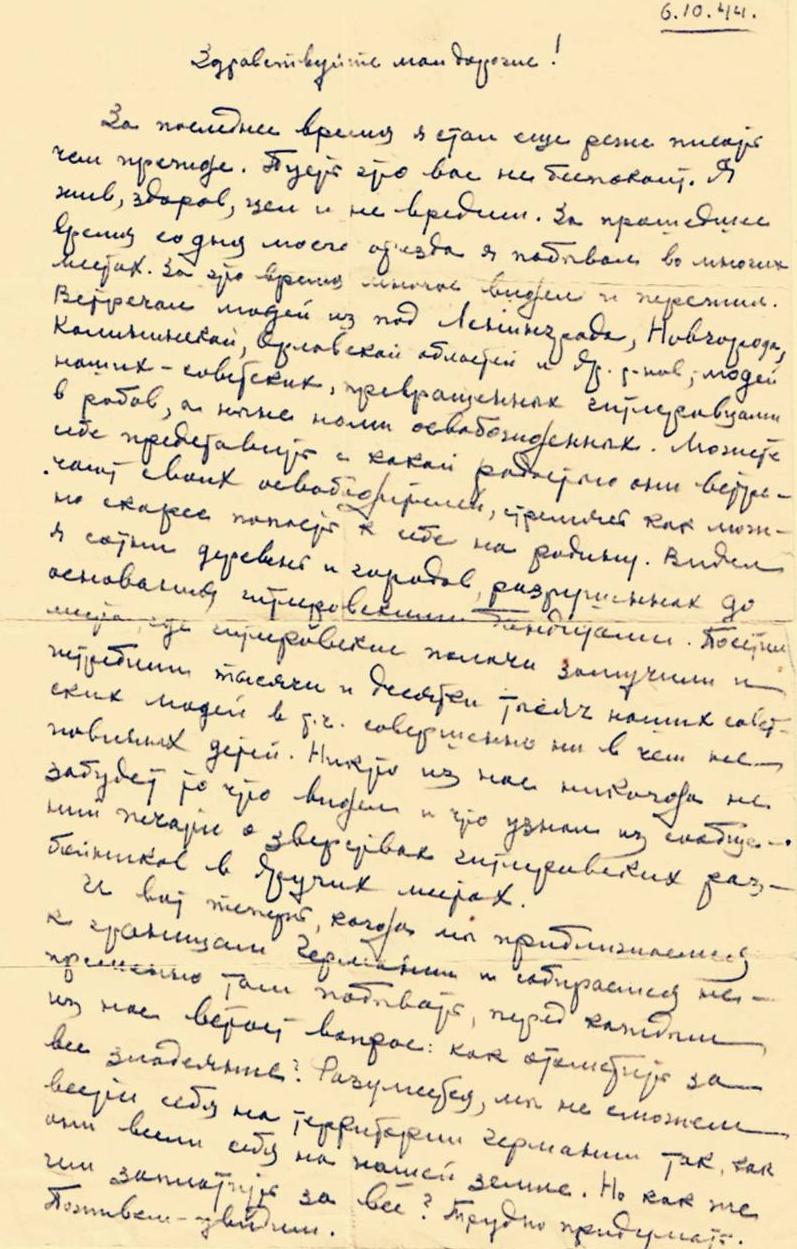 6.10.44.
Здравствуйте мои дорогие!
За последнее время я стал еще реже писать
чем прежде. Пусть это вас не беспокоит. Я
жив, здоров, цел и не вредим. За прошедшее
время со дня моего отъезда я побывал во многих
местах. За это время многое видел и пережил.
Встречал людей из под Ленинграда, Новгорода,
Калининской, Орловской областей и др. р-нов, людей
наших-советских, превращенных гитлеровцами
в рабов, а ныне нами освобожденных. Можете
себе представить с какой радостью они встре-
чают своих освободителей, стремятся как мож-
но скорее попасть к себе на родину. Видел
я сотни деревень и городов, разрушенных до
основания гитлеровскими бандитами. Посетил
места, где гитлеровские палачи замучили и
истребили тысячи и десятки тысяч наших совет-
ских людей в т.ч. совершенно ни в чем не
повинных детей. Никто из нас никогда не
забудет то что видел и что узнал из сообще-
ний печати о зверствах гитлеровских раз-
бойников в других местах.
И вот теперь, когда мы приближаемся
к границам Германии и собираемся не-
пременно там побывать, перед каждым
из нас встает вопрос: как отомстить за
все злодеяния? Разумеется, мы не сможем
вести себя на территории Германии так, как
они вели себя на нашей земле. Но как же
им заплатить за всё? Трудно придумать.
Поживем-увидим.